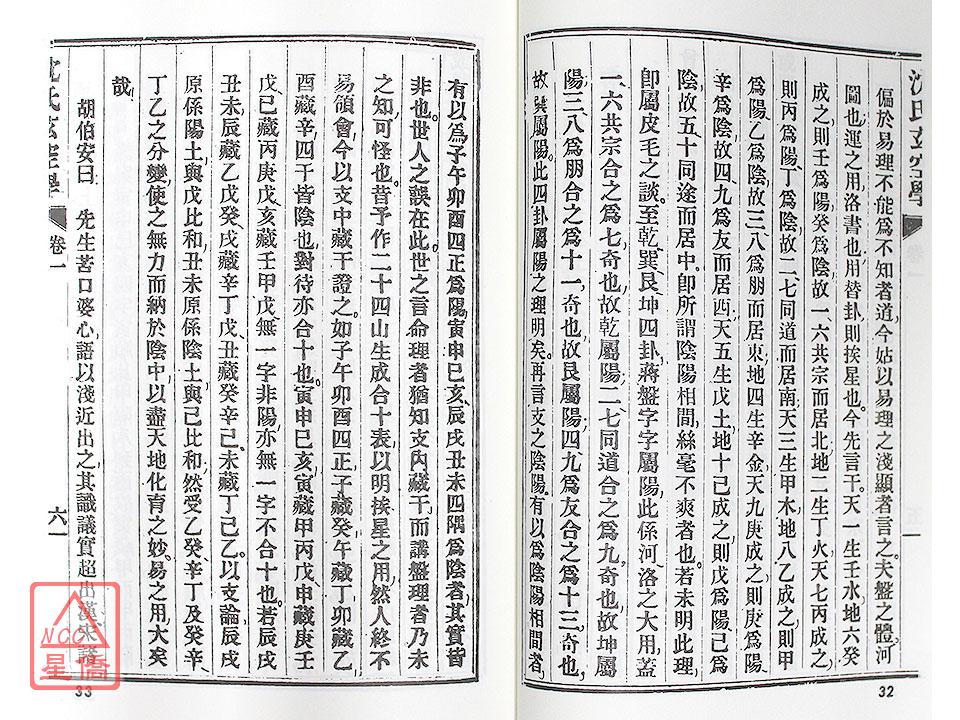 沈氏玄空學
卷一
偏於易理不能爲不知者道今姑以易理之淺顯者言之夫盤之體河
圖也運之用洛書也用替卦則挨星也今先言干天一生壬水地六癸
成之則壬爲陽癸爲陰故一六共宗而居北地二生丁火天七丙成之
則丙爲陽丁爲陰故二七同道而居南天三生甲木地八乙成之則甲
爲陽乙爲陰故三八爲朋而居東地四生辛金天九庚成之則庚爲陽
辛爲陰故四九爲友而居西天五生戊土地十己成之則戊爲陽己爲
陰故五十同途而居中卽所謂陰陽相間絲毫不爽者也若未明此理
卽屬皮毛之談至乾巽艮坤四卦蔣盤字字屬陽此係河洛之大用蓋
一六共宗合之爲七奇也故乾屬陽二七同道合之爲九奇也故坤屬
陽三八爲朋合之爲十一奇也故艮屬陽四九爲友合之爲十三奇也
故巽屬陽此四卦屬陽之理明矣再言支之陰陽有以爲陰陽相間者
32
有以爲子午卯酉四正爲陽寅申巳亥辰戌丑未四隅爲陰者其實皆
非也世人之誤在此世之言命理者猶知支內藏干而講盤理者乃未
之知可怪也昔予作二十四山生成合十表以明挨星之用然人終不
易領會今以支中藏干證之如子午卯酉四正子藏癸午藏丁卯藏乙
酉藏辛四干皆陰也對待亦合十也寅申巳亥寅藏甲丙戊申藏庚壬
戊巳藏丙庚戊亥藏壬甲戊無一字非陽亦無一字不合十也若辰戌
丑未辰藏乙戊癸戌藏辛丁戊丑藏癸辛己未藏丁己乙以支論辰戌
原係陽土與戊比和丑未原係陰土與己比和然受乙癸辛丁及癸辛
丁乙之分變使之無力而納於陰中以盡天地化育之妙易之用大矣
哉
胡伯安曰　先生苦口婆心語以淺近出之其識議實超出漢宋諸
沈氏玄空學
卷一
六一
33
NCC
星僑